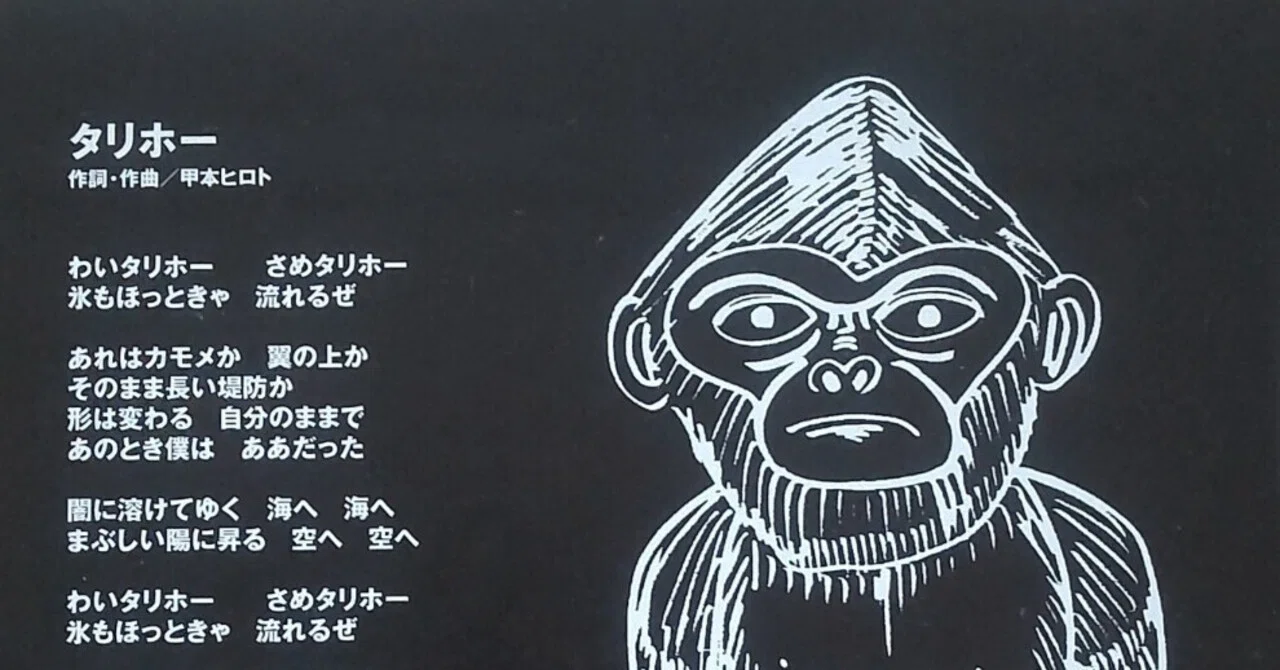 タリホー
作詞・作曲／甲本ヒロト
わいタリホー　　さめタリホー
氷もほっときゃ　流れるぜ
あれはカモメか　翼の上か
そのまま長い堤防か
形は変わる　自分のままで
あのとき僕は　ああだった
闇に溶けてゆく　海へ　海へ
まぶしい陽に昇る　空へ　空へ
わいタリホー　　さめタリホー
氷もほっときゃ　流れるぜ